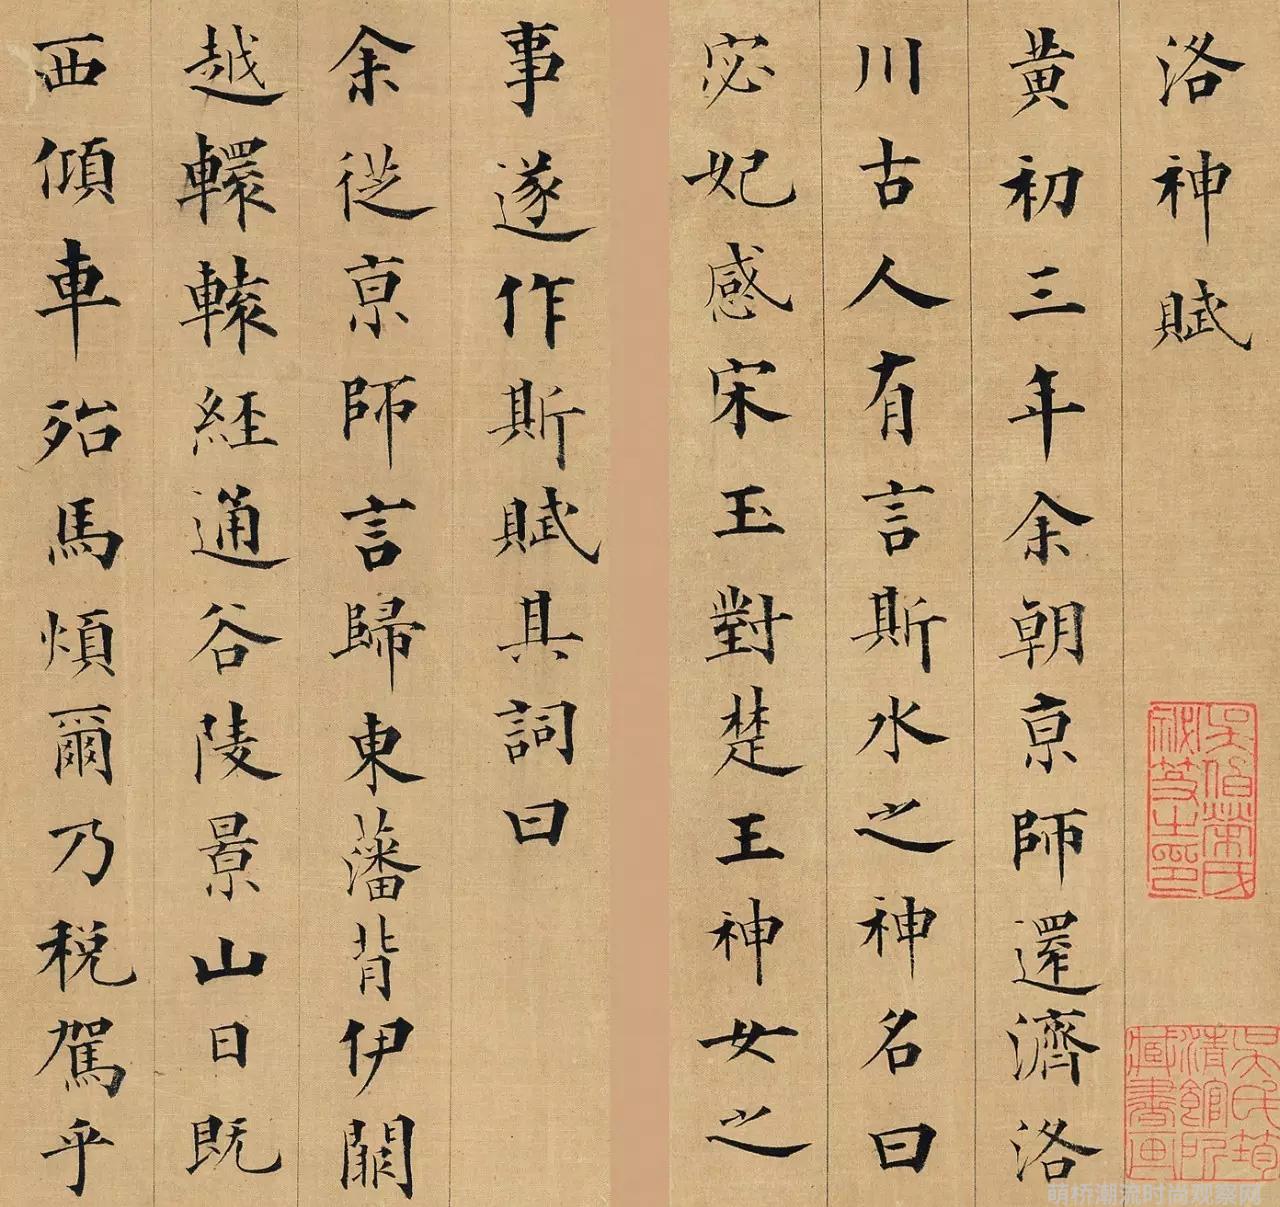 洛神賦
黄初三年余朝京師還濟洛
川古人有言斯水之神名曰
宓妃感宋玉對楚王神女之
事遂作斯賦其詞曰
余從京師言歸東藩背伊闕
越轘轅經通谷陵景山日既
西傾車殆馬煩爾乃税駕乎
吳氏筠
清館所
藏書画
萌桥潮流时尚观察网